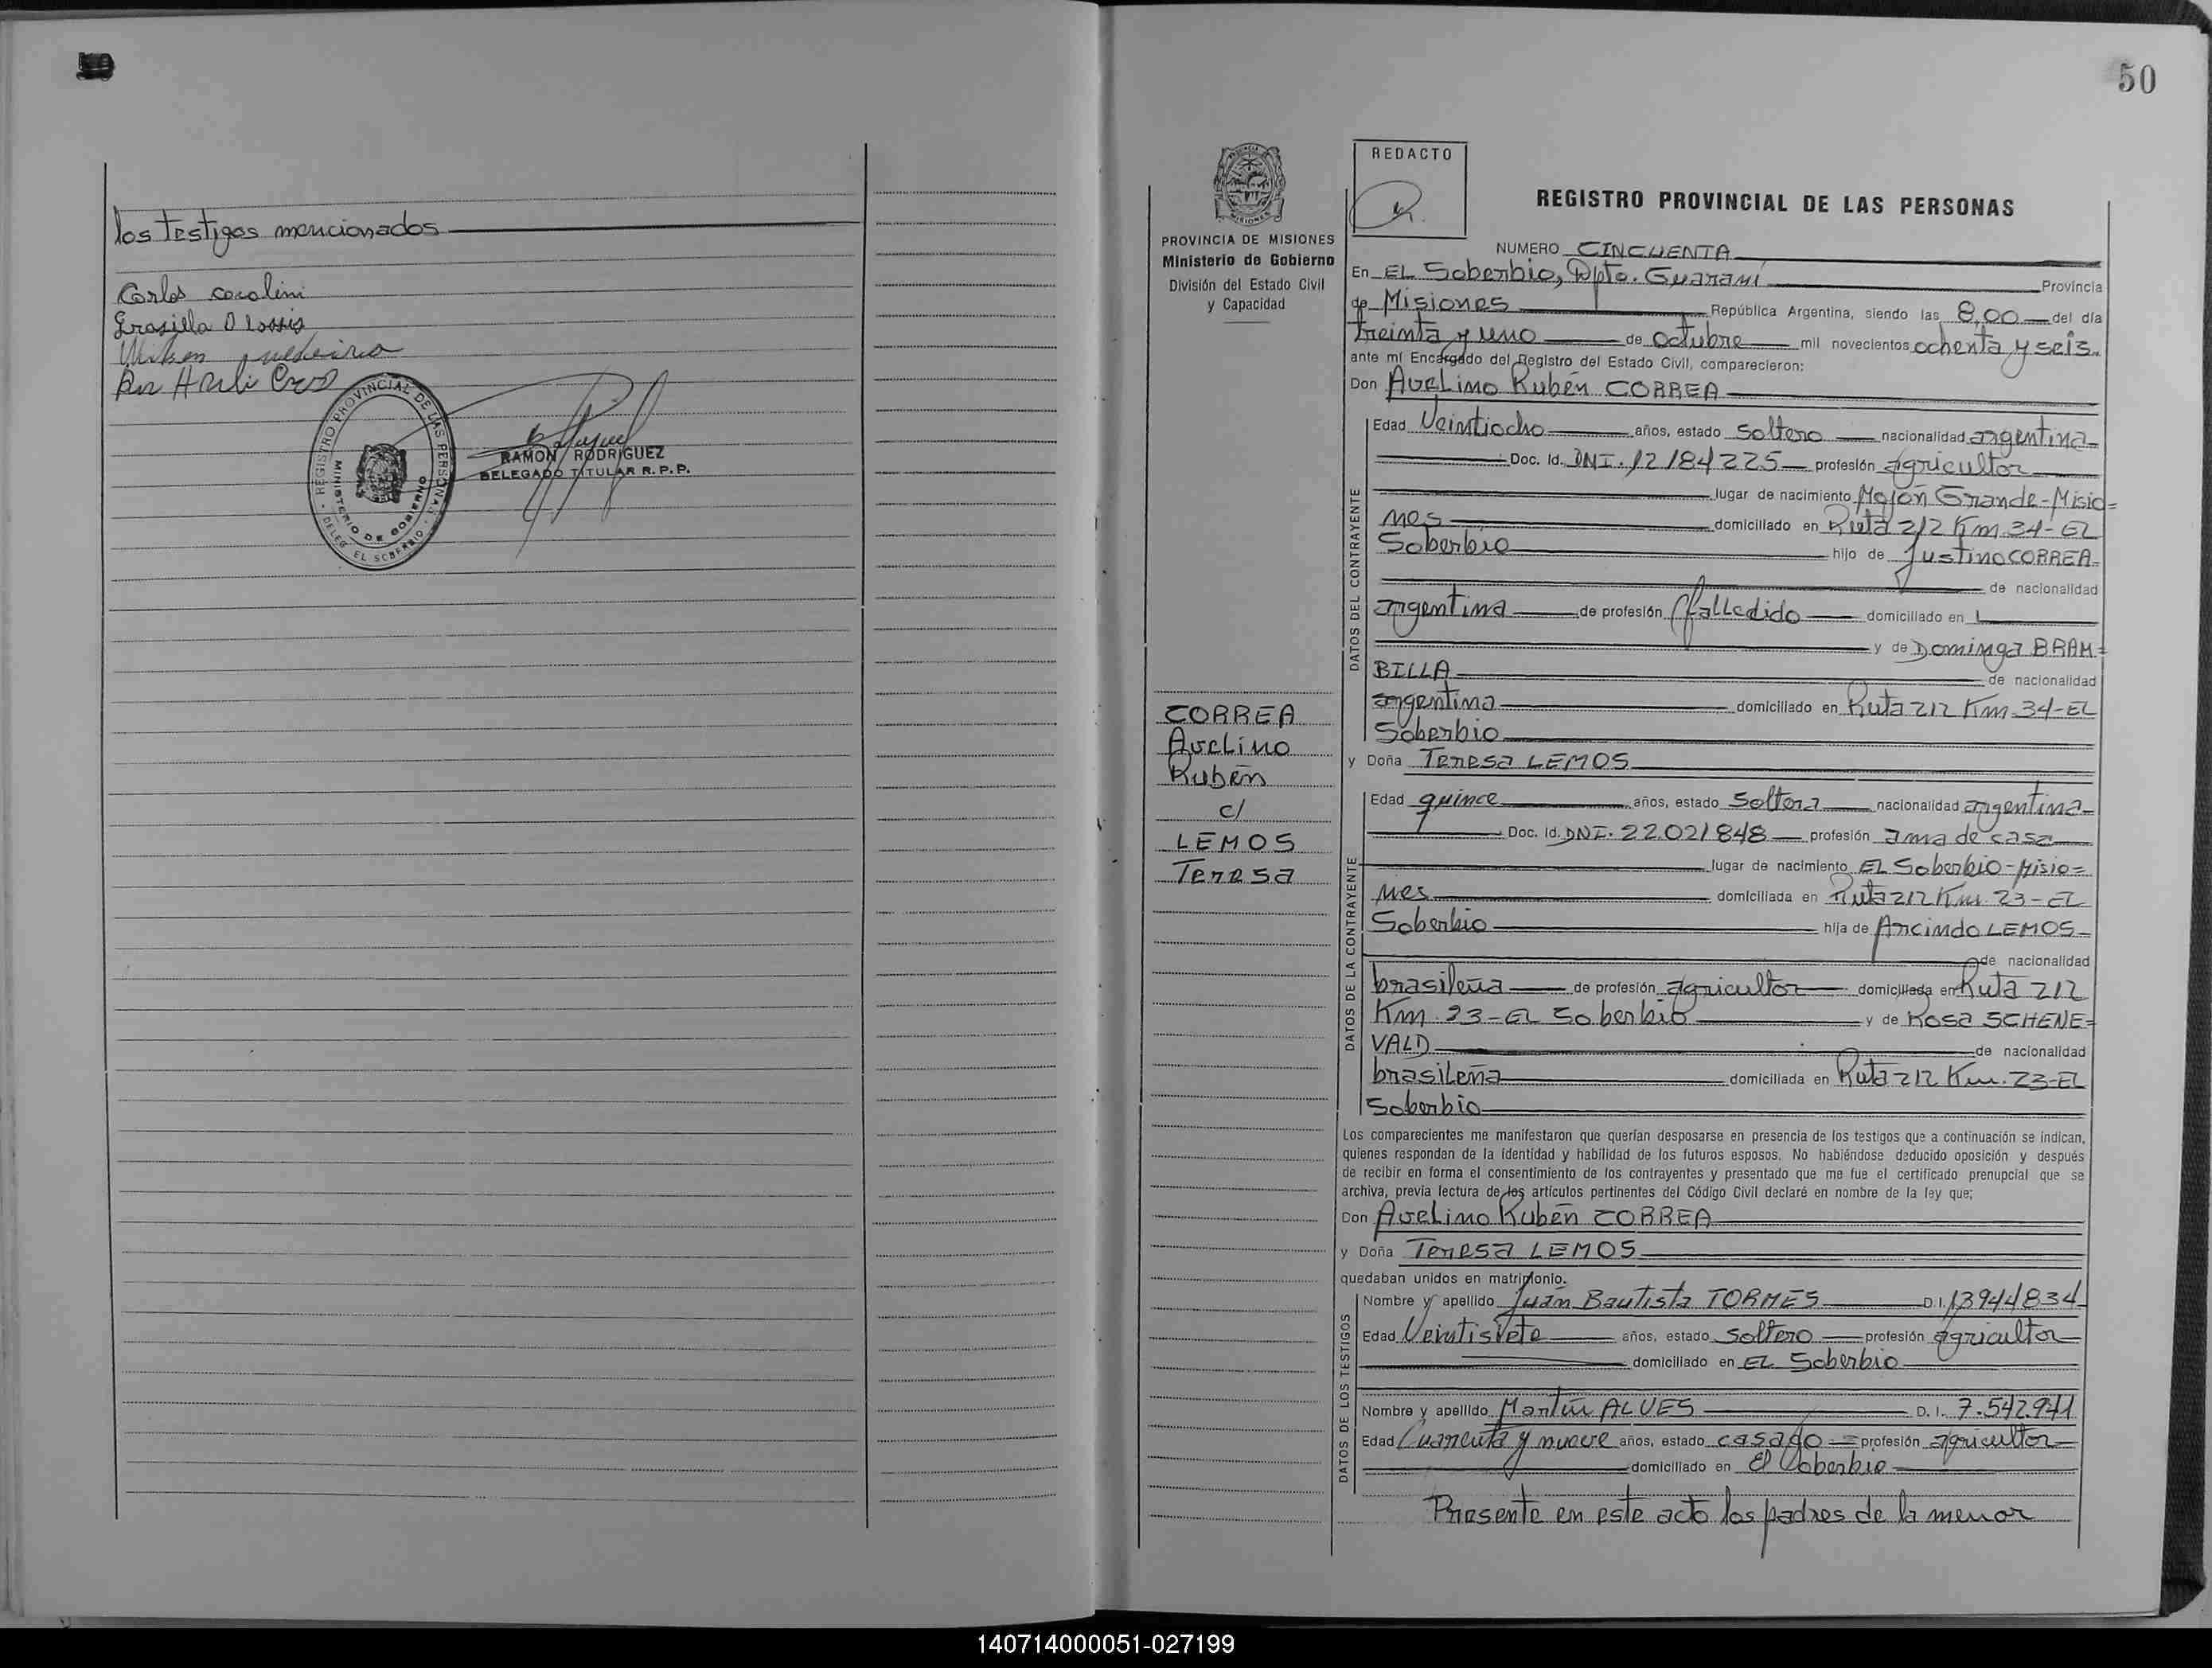 los testigos mencionados
Carlos
Grasiela
REGISTRO PROVINCIAL DE LAS PERSONAS
MINISTERIO DE GOBIERNO
DELEG. EL SOBERBIO
RAMON RODRIGUEZ
DELEGADO TITULAR R.P.P.
50
PROVINCIA DE MISIONES
Ministerio de Gobierno
División del Estado Civil
y Capacidad
CORREA
Avelino
Rubén
c/
LEMOS
Teresa
REDACTO
REGISTRO PROVINCIAL DE LAS PERSONAS
NUMERO CINCUENTA
En EL Soberbio, Dpto. Guaraní Provincia
de Misiones República Argentina, siendo las 8,00 del día
treinta y uno de octubre mil novecientos ochenta y seis.
ante mí Encargado del Registro del Estado Civil, comparecieron:
Don Avelino Rubén CORREA
DATOS DEL CONTRAYENTE
Edad Veintiocho años, estado soltero nacionalidad argentina
Doc. Id. DNI. 12184225 profesión agricultor
lugar de nacimiento Mojón Grande-Misio=
nes domiciliado en Ruta 212 Km.34- EL
Soberbio hijo de Justino CORREA
de nacionalidad
argentina de profesión (falledido domiciliado en
y de Dominga BRAM=
BILLA de nacionalidad
argentina domiciliado en Ruta 212 Km.34-EL
Soberbio
y Doña Teresa LEMOS
DATOS DE LA CONTRAYENTE
Edad quince años, estado Soltera nacionalidad argentina
Doc. Id. DNI. 22.021848 profesión ama de casa
lugar de nacimiento EL Soberbio-Misio=
nes domiciliada en Ruta 212 Km. 23-EL
Soberbio hija de Arcindo LEMOS
de nacionalidad
brasileña de profesión agricultor domiciliada en Ruta 212
Km. 23-EL Soberbio y de Rosa SCHENE=
VALD de nacionalidad
brasileña domiciliada en Ruta 212 Km. 23-EL
Soberbio
Los comparecientes me manifestaron que querían desposarse en presencia de los testigos que a continuación se indican,
quienes responden de la identidad y habilidad de los futuros esposos. No habiéndose deducido oposición y después
de recibir en forma el consentimiento de los contrayentes y presentado que me fue el certificado prenupcial que se
archiva, previa lectura de los artículos pertinentes del Código Civil declaré en nombre de la ley que;
Don Avelino Rubén CORREA
y Doña Teresa LEMOS
quedaban unidos en matrimonio.
DATOS DE LOS TESTIGOS
Nombre y apellido Juan Bautista TORMES D.I. 13944834
Edad Veintisiete años, estado soltero profesión agricultor
domiciliado en EL Soberbio
Nombre y apellido Martín ALVES D. I. 7.542.941
Edad Cuarenta y nueve años, estado casado profesión agricultor
domiciliado en El Soberbio
Presente en este acto los padres de la menor
140714000051-027199